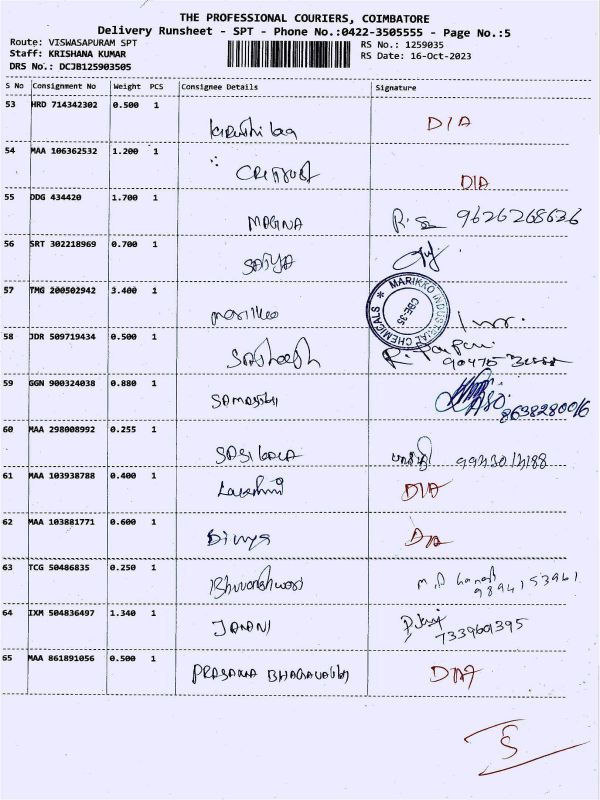 THE PROFESSIONAL COURIERS, COIMBATORE
Delivery Runsheet - SPT - Phone No.:0422-3505555 - Page No.:5
Route: VISWASAPURAM SPT RS No.: 1259035
Staff: KRISHANA KUMAR RS Date: 16-Oct-2023
DRS No.: DCJB125903505
S No Consignment No Weight PCS Consignee Details Signature
53 HRD 714342302 0.500 1
DIA
54 MAA 106362532 1.200 1
DIA
55 DDG 434420 1.700 1
MAGNA 9626268626
56 SRT 302218969 0.700 1
SATYA
57 TMG 200502942 3.400 1
MARIKKO INDUSTRIAL CHEMICALS * CBE-35
marikko
58 JDR 509719434 0.500 1
SATHEESH
59 GGN 900324038 0.880 1
60 MAA 298008992 0.255 1
SASIKALA
61 MAA 103938788 0.400 1
Lakshmi DIA
62 MAA 103881771 0.600 1
Divya DIA
63 TCG 50486835 0.250 1
Bhuvaneshwari 9894153961
64 IXM 504836497 1.340 1
JANANI 733969395
65 MAA 861891056 0.500 1
PRASANNA